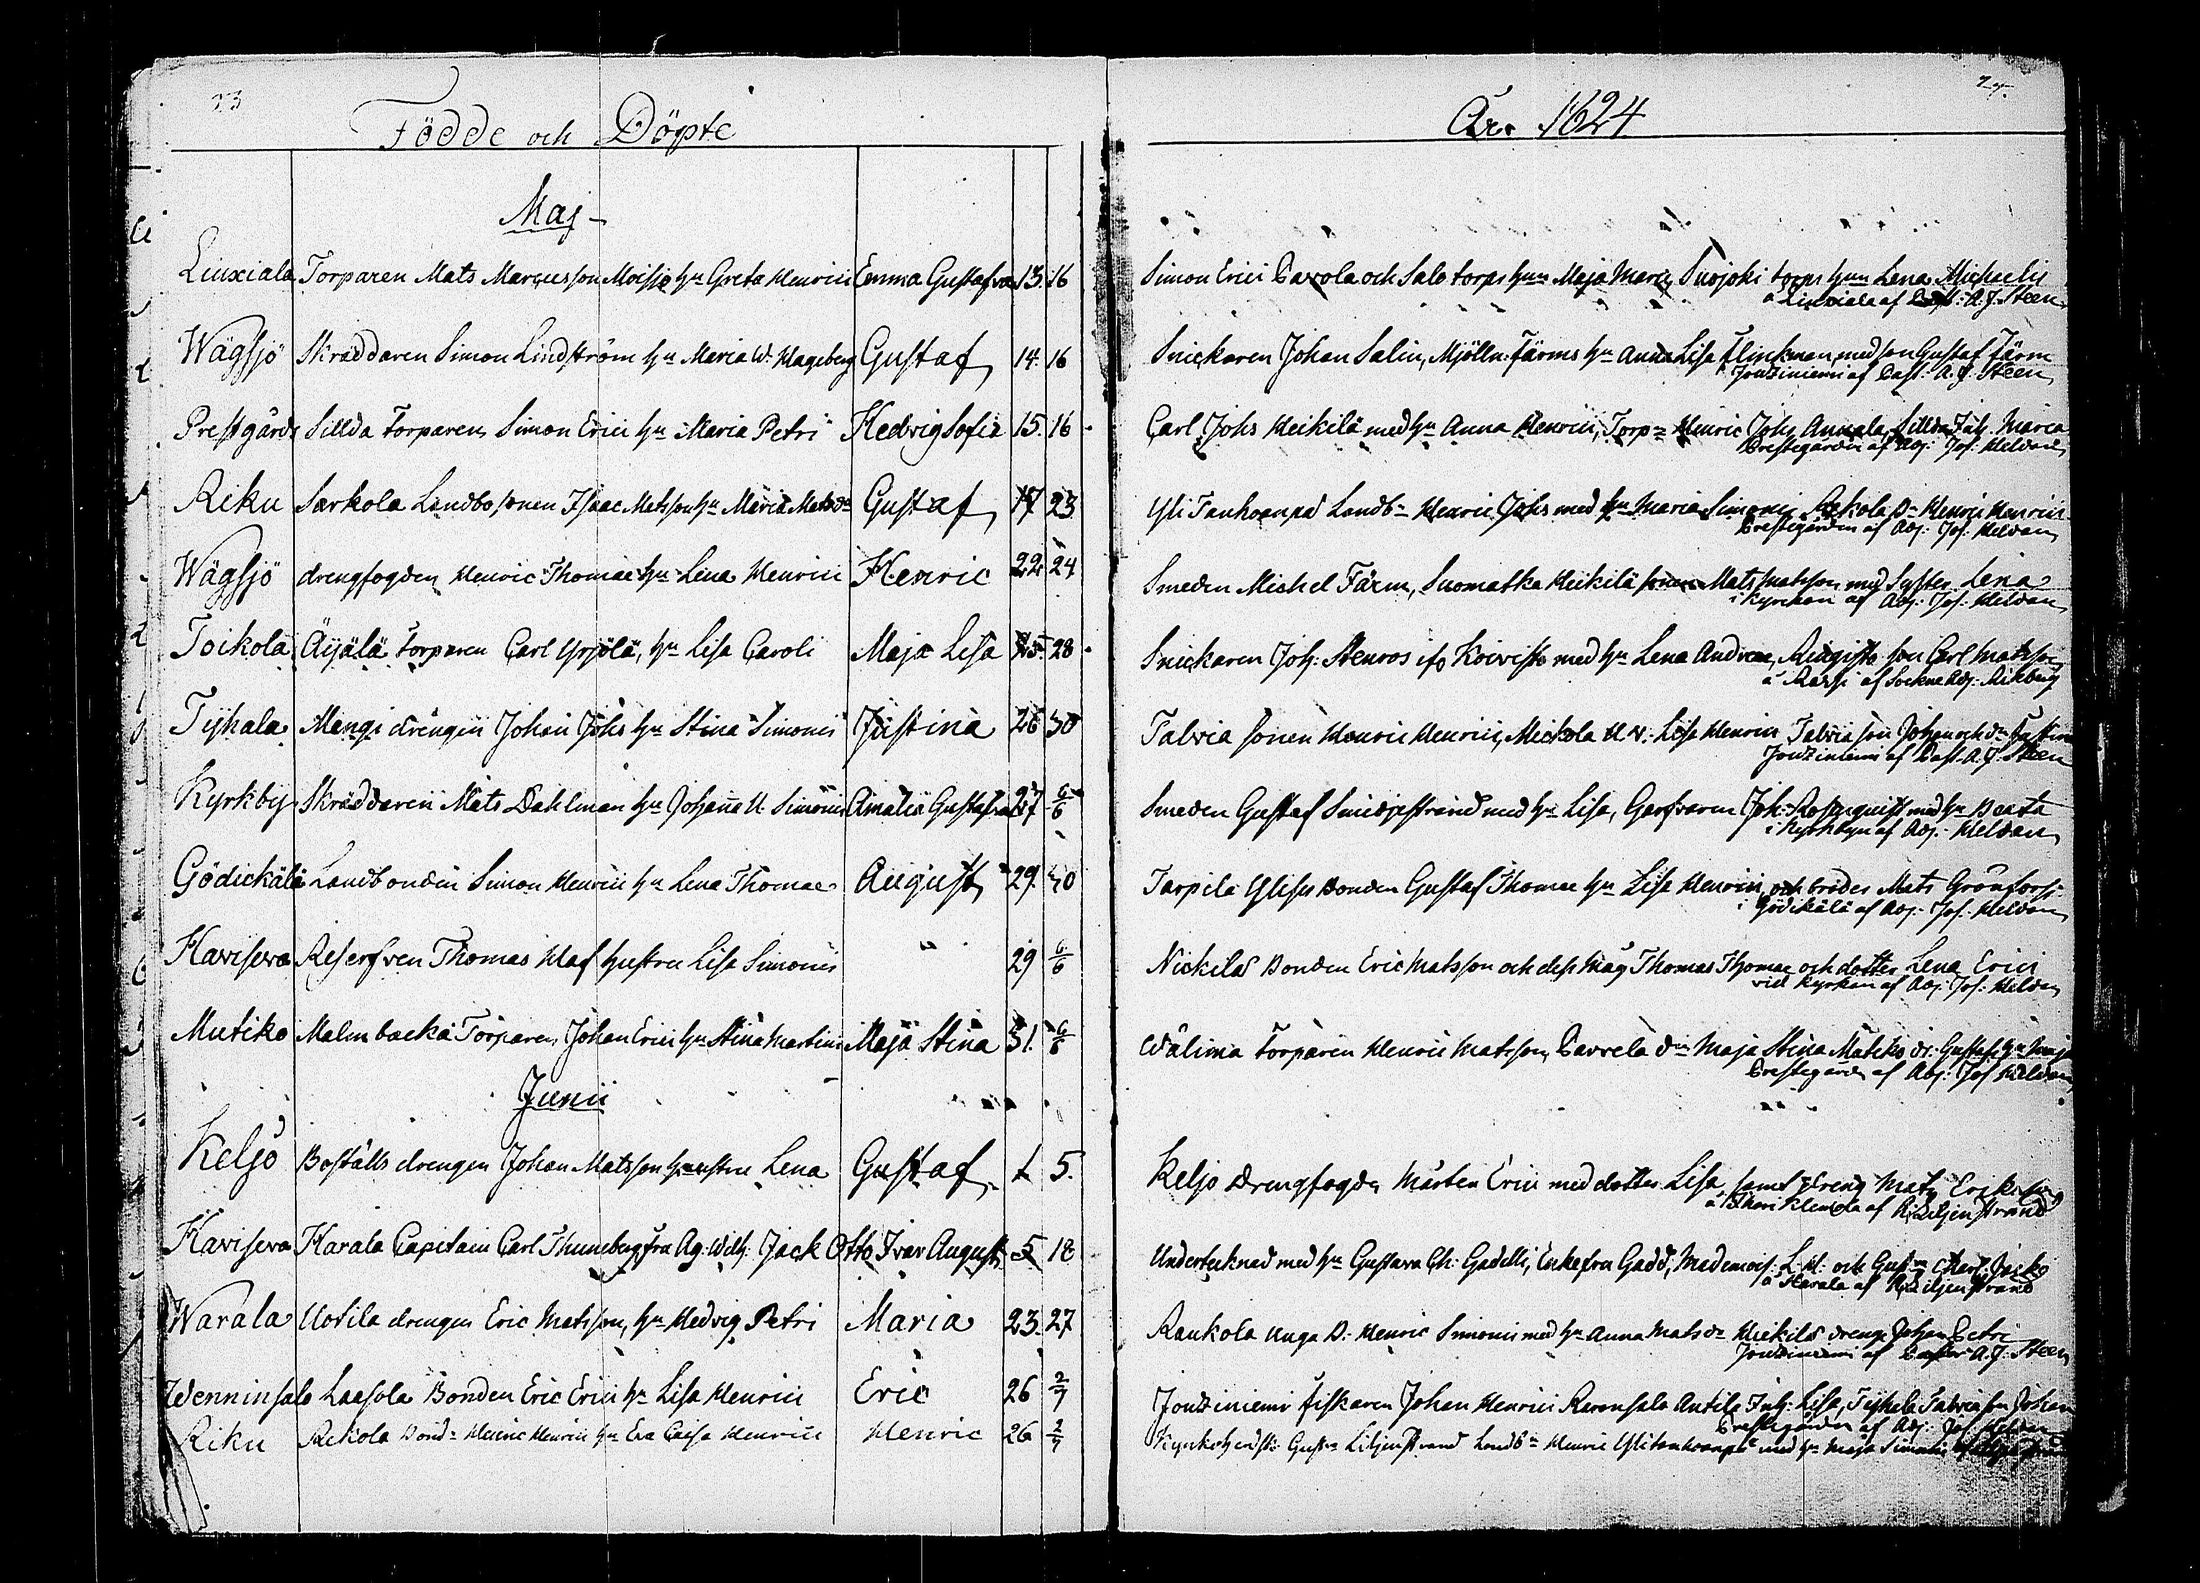 23
Födde och Döpte
Maj
Liuxiala Torparen Mats Marcusson Moisio hu Greta Henrici Emma Gustafva 13. 16
Wägsjö Skräddaren Simon Lindström hu Maria W. Hageberg Gustaf 14. 16
Prestgårds Sillda Torparen Simon Erici hu Maria Petri Hedvig Sofia 15. 16
Riku Sarkola Landbosonen Isaac Matsson hu Maria Matsdr Gustaf 17 23
Wägsjö drengfogden Henric Thomae hu Lena Henrici Henric 22. 24
Toikola Äijälä torparen Carl Yrjölä, hu Lisa Caroli Maja Lisa 25. 28
Tyhala Mangi drengen Johan Johs hu Stina Simonis Justina 26 30
Kyrkby Skräddaren Mats Dahlman hu Johanna U. Simonis Amalia Gustafva 27 6/6
Gödickälä Landbonden Simon Henrici hu Lena Thomae August 29. 30
Haviseva Reserfven Thomas Haf hustru Lisa Simonis 29 6/6
Mutiko Malmbacka Torparen Johan Erici hu Stina Martini Maja Stina 31. 6/6
Junii
Keljo Boställs drengen Johan Matsson hustru Lena Gustaf 1 5.
Haviseva Harala Capitain Carl Thuneberg fru Ag. Wilh. Jack Otto Ivar August 5 18
Warala Uotila drengen Eric Matsson, hu Hedvig Petri Maria 23. 27
Wenninsalo Laasola Bonden Eric Erici hu Lisa Henrici Eric 26 2/7
Riku Rekola Bond. Henric Henrici hu Eva Caisa Henrici Henric 26 2/7
År 1824
Simon Erici Pavola och Salo torps hun Maja Marci, Suojoki torps hun Lena Michaelis
å Liuxiala af Past. A. J. Steen
Snickaren Johan Salin, Mjöln. Färms hu Anna Lisa Flinkman med son Gustaf Färm
Jouziniemi af Past. A. J. Steen
Carl Johs Heikilä med hu Anna Henrici, Torp. Henric Johs Annala, Sillda Inh. Maria
Prestegården af Adj. Jos. Heldan
Yli Tanhuanpä Landb. Henric Johs med hu Maria Simonis, Rekola Dr Henric Henrici
Prestegården af Adj. Jos. Heldan
Smeden Michel Färm, Suomatka Heikilä sonen Mats Matsson med Syster Lena
i Kyrckan af Adj. Jos. Heldan
Snickaren Joh. Stenros ifr Koivisto med hu Lena Andreae, Ringisto son Carl Matsson
å Rassi af Sockne Adj. Rikberg
Talvia sonen Henric Henrici, Mickola Lisa Henrici Talvia son Johan och dr Justina
Jouziniemi af Past. A. J. Steen
Smeden Gustaf Smidjestrand med hu Lisa, Garfvaren Joh. Rosenquist med hu Beata
i Kyrkbyn af Adj. Heldan
Tarpila Ylisen Bonden Gustaf Thomae hu Lisa Henrici och broder Mats Grönfors
i Gödikälä af Adj. Jos. Heldan
Nickilä Bonden Eric Matsson och dess Måg Thomas Thomae och dotter Lena Erici
vid Kyrkan af Adj. Jos. Heldan
Wälima Torparen Henric Matsson, Pavvela dr Maja Stina Mutiko dr. Gustaf hu Maja
Prestegården af Adj. Jos Heldan
Keljo Drengfogden Mårten Erici med dotter Lisa samt Dreng Mats Ericksson
af R. Liljenstrand
Undertecknad med hu Gustava Ch. Gadelli, Enkefru Gadd, Mademois. L. H. och Gust. Charl. Jack
å Harala af R. Liljenstrand
Raukola Unga B. Henric Simonis med hu Anna Matsdr Heikilä dreng Johan Petri
Jouziniemi af Pastor A. J. Steen
Jouziniemi fiskaren Johan Henrici Ravansala Antila Inh. Lisa, Tyhala Talvia son Johan
Prestegården af Adj. Jos. Heldan
Kyrkoherdsk. Gust. Liljenstrand Landb. Henric Ylitanhuanpä med hu Maja Simonis